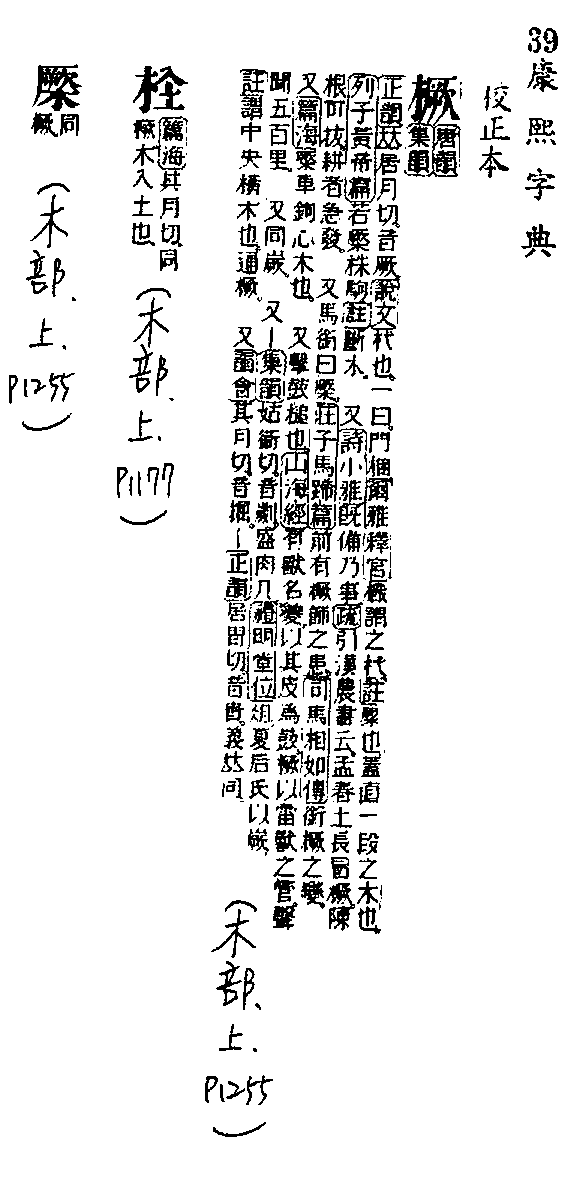 39 康熙字典
校正本
橛
唐韻
集韻
正韻𠀤居月切音厥說文杙也一曰門梱爾雅釋宮橛謂之杙註橜也蓋直一段之木也
列子黃帝篇若橜株駒註斷木 又詩小雅旣備乃事疏引漢農書云孟春土長冒橛陳
根可拔耕者急發 又馬銜曰橜莊子馬蹄篇前有橛飾之患司馬相如傳銜橛之變
又篇海橜車鉤心木也 又擊鼓槌也山海經有獸名夔以其皮爲鼓橛以雷獸之骨聲
聞五百里 又同嶡 又一集韻姑衞切音劌盛肉几禮明堂位俎夏后氏以嶡
註謂中央橫木也通橛 又韻會其月切音掘一正韻居胃切音貴義𠀤同
(木部.上.P1255)
栓
篇海其月切同
橛木入土也
(木部.上.P1177)
橜
同
橛
(木部.上.P1255)